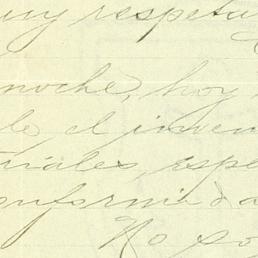 uy respetu
noche, hoy
le el inven
riales, espe
onformida
No so